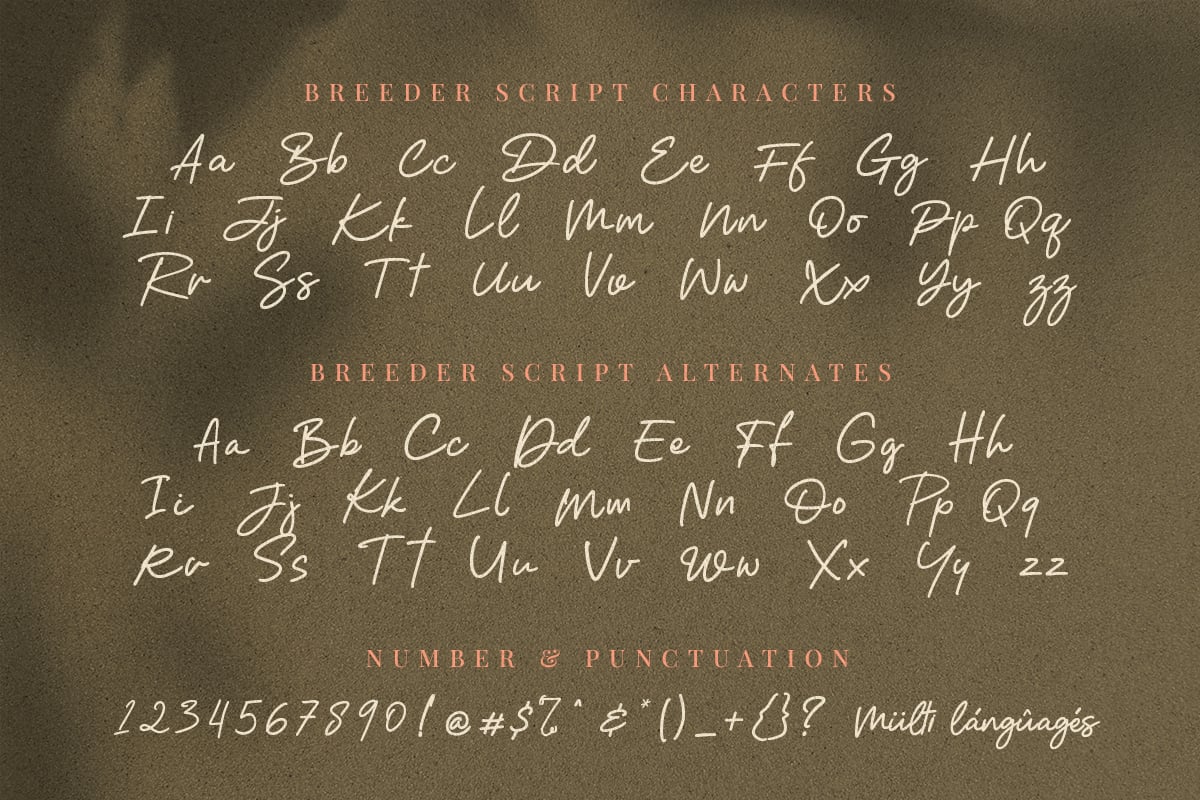 BREEDER SCRIPT CHARACTERS
Aa Bb Cc Dd Ee Ff Gg Hh
Ii Jj Kk Ll Mm Nn Oo Pp Qq
Rr Ss Tt Uu Vv Ww Xx Yy zz
BREEDER SCRIPT ALTERNATES
Aa Bb Cc Dd Ee Ff Gg Hh
Ii Jj Kk Ll Mm Nn Oo Pp Qq
Rr Ss Tt Uu Vv Ww Xx Yy zz
NUMBER & PUNCTUATION
1234567890!@#$%^&*()_+{}? Mülti lángûagés